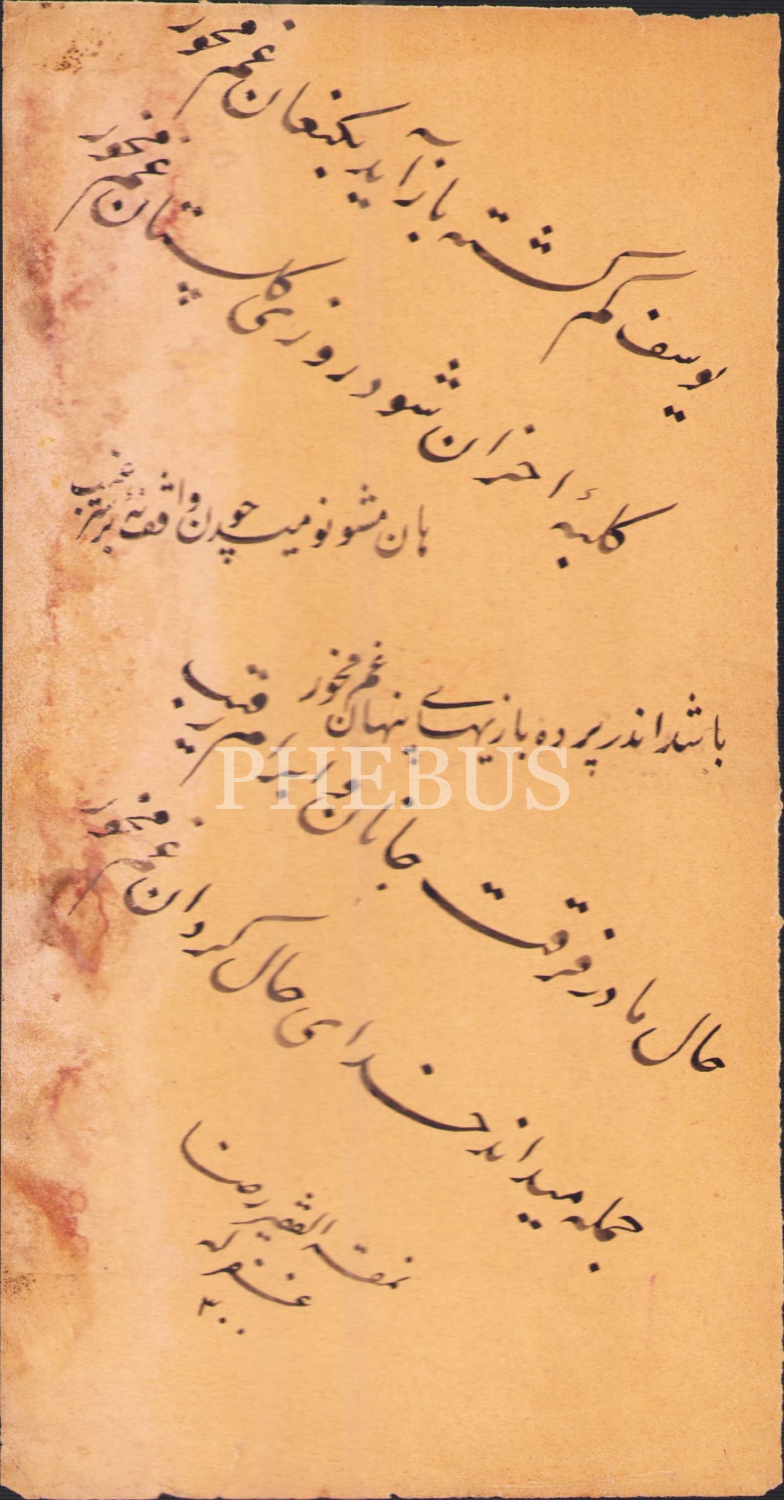 یوسف گم گشته بازآید بکنعان غم مخور
کلبهٔ احزان شود روزی گلستان غم مخور
هان مشو نومید چون واقف نهٔ بر سر غیب
باشد اندر پرده بازیهای پنهان غم مخور
حال ما در فرقت جانان و ابرام رقیب
جمله میداند خدای حال گردان غم مخور
نمقه الفقیر رضا
غفر له
۳۰۰
PHEBUS